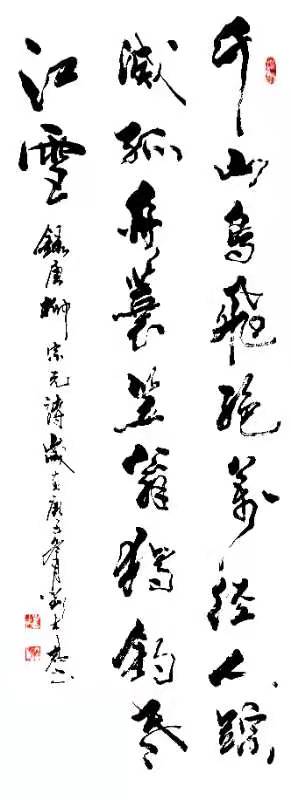 千山鳥飛絕萬徑人蹤
滅孤舟蓑笠翁獨釣寒
江雪
錄唐柳宗元詩歲在庚子